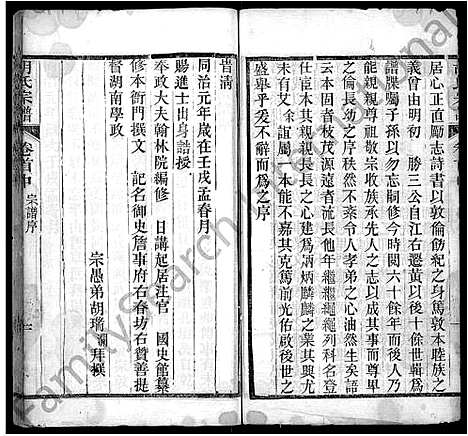 居心正直勵志詩書以敦倫飭紀之身篤敦本睦族之
義曾由明初 勝三公自江右遷黃以後十餘世輯為
譜牒囑子孫以勿忘制修今時閱六十餘年而後人乃
能親親尊祖敬宗收族承先人之志以成其事而尊卑
之倫長幼之序秩然不紊令人孝弟之心油然生矣語
云本固者枝茂源遠者流長他年繼繼繩繩列科名登
仕宦本其親親長長之心建為炳炳麟麟之業使天下
後世之人
百年艾 余誼屬一本能不嘉其克篤前光佑啟後者
盛舉乎爰不辭而為之序
皆清
同治元年歲在壬戌孟春月
賜進士出身誥授
奉政大夫翰林院編修 日講起居注官 國史館纂
修本衙門撰文 記名御史詹事府右春坊右贊善提
督湖南學政
宗愚弟胡瑞瀾拜撰
胡氏宗譜
卷首中
宗譜序
一
FamilySearch International